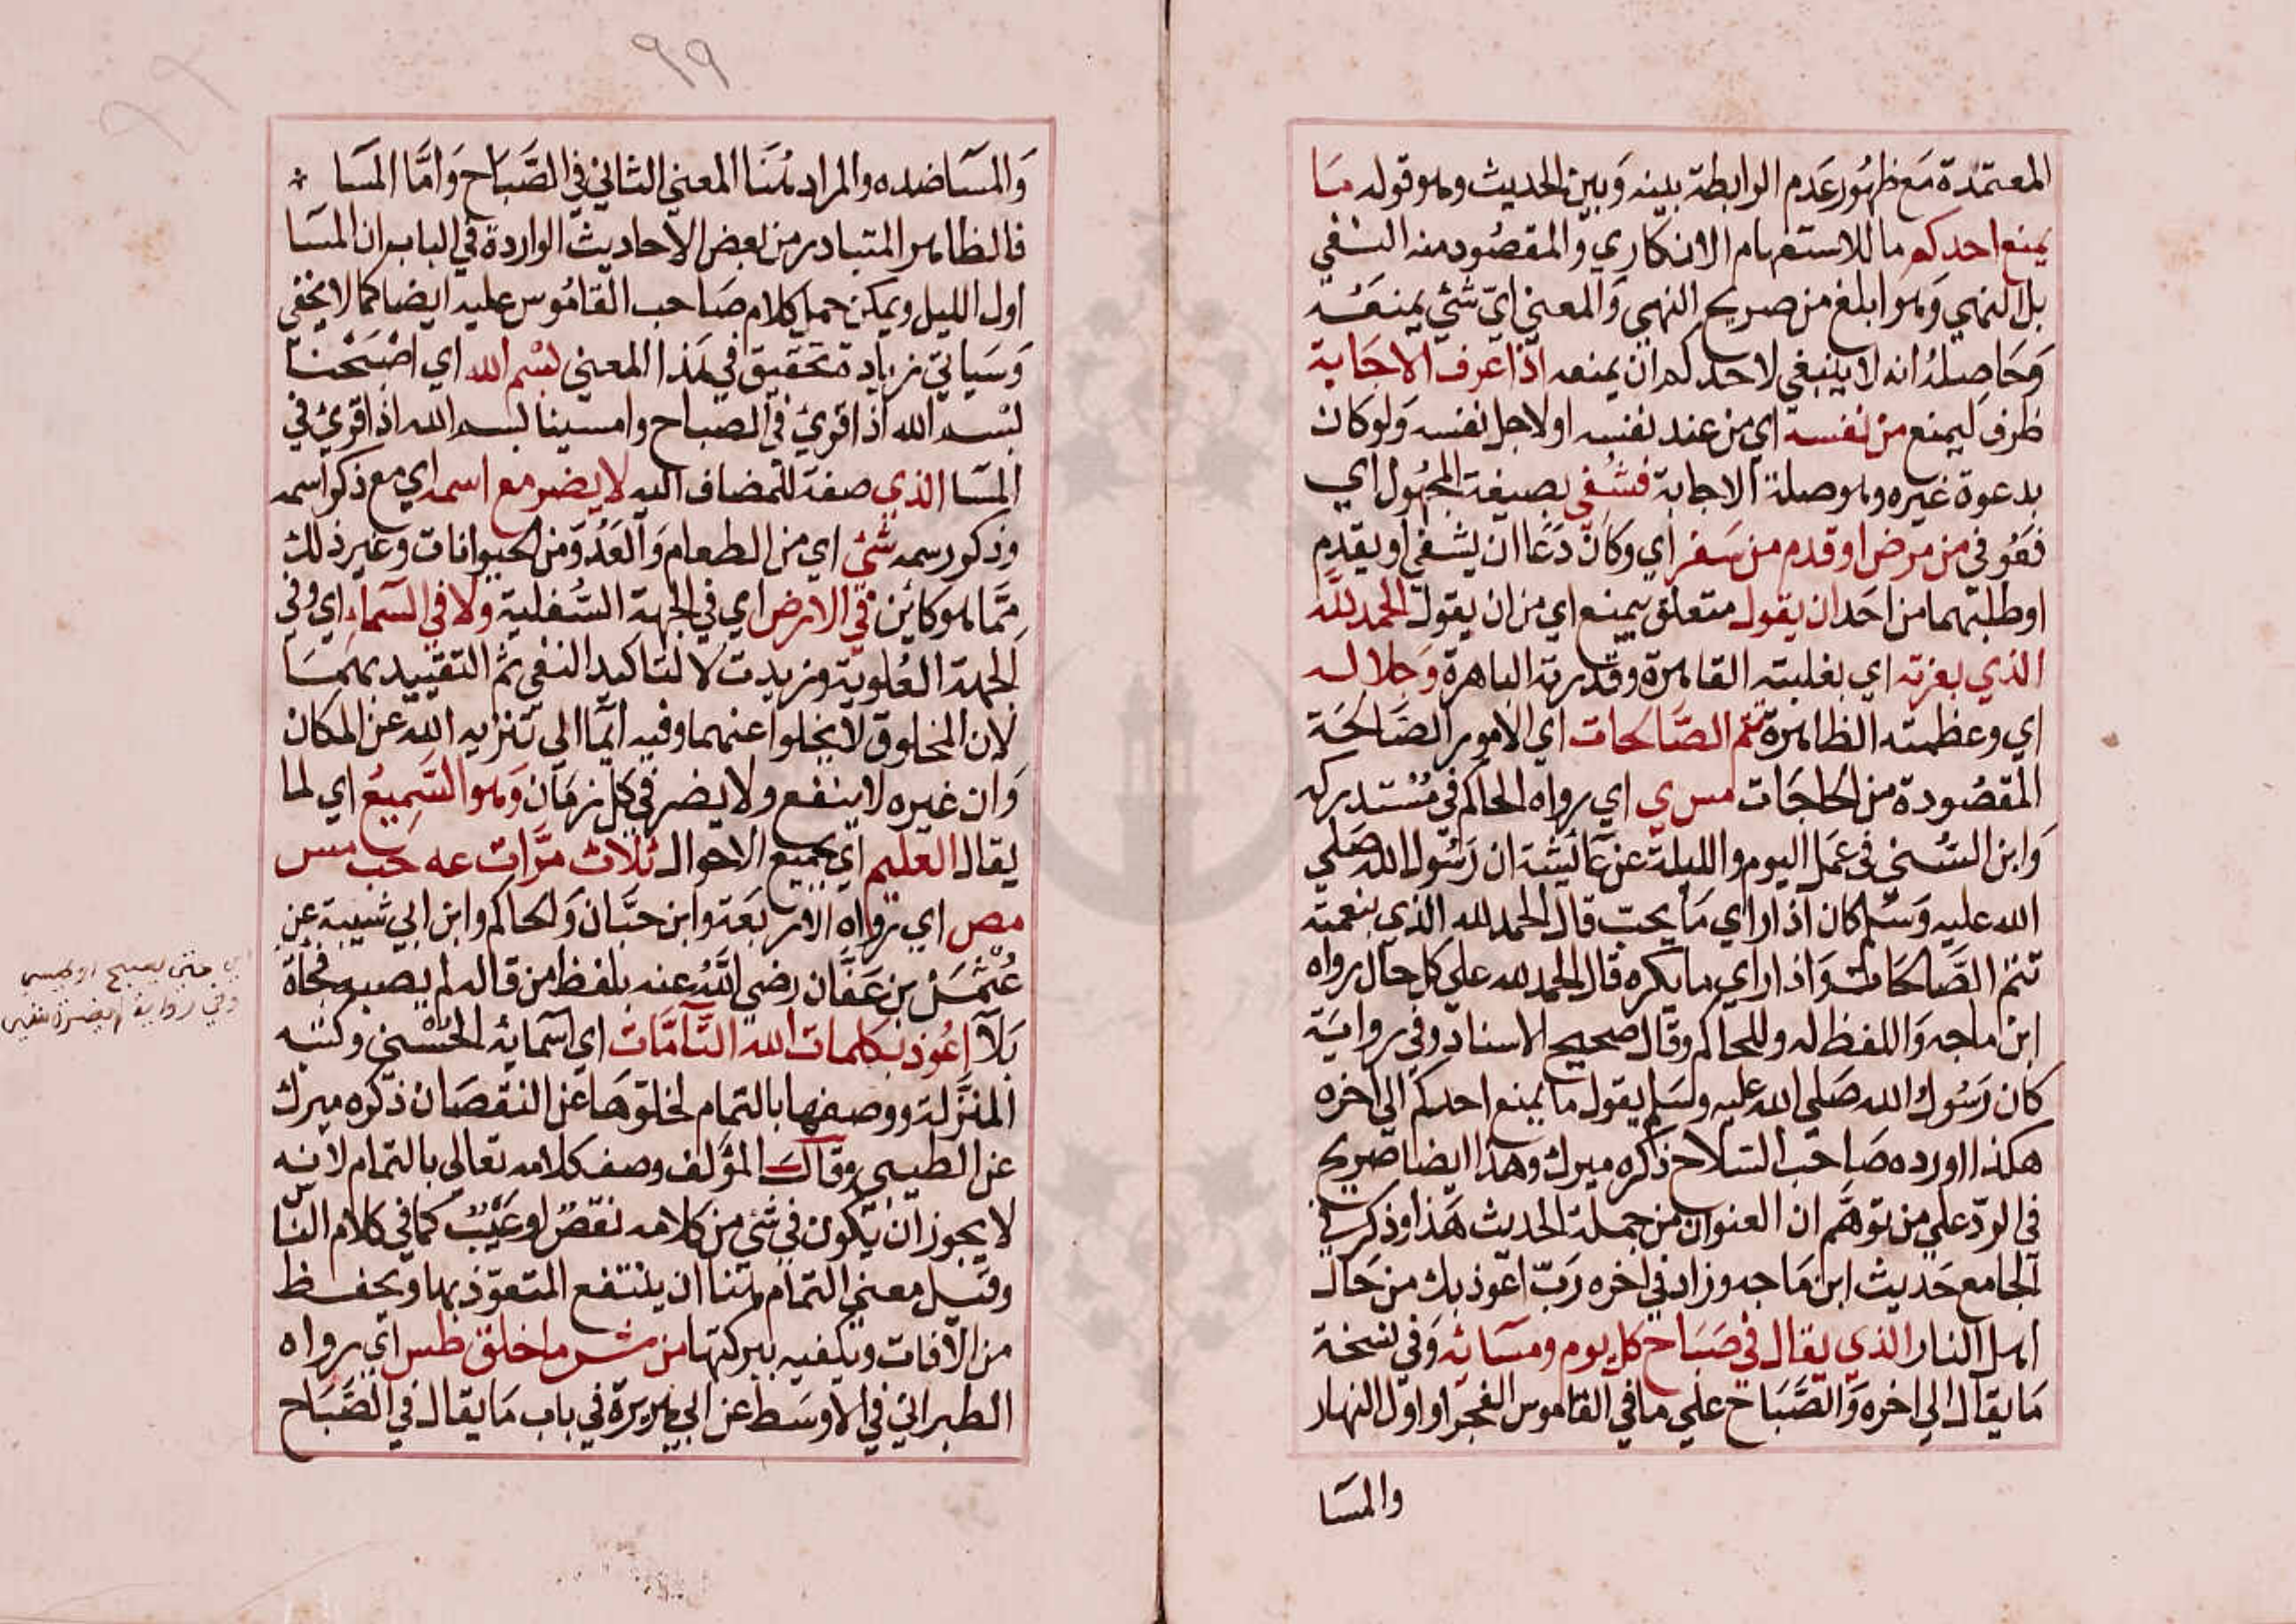 المعتمدة مع ظهور عدم الرابطة بينه وبين الحديث وهو قوله ما
يمنع احدكم ما للاستفهام الانكاري والمقصود منه النفي
بل النهي وهو ابلغ من صريح النهي والمعني اي شئ يمنعه
وحاصله انه لا ينبغي لاحدكم ان يمنعه اذا عرف الاجابة
ظرف ليمنع من نفسه اي من عند نفسه او لاجل نفسه ولو كان
بدعوة غيره وهو صلة الاجابة فشفي بصيغة المجهول اي
فعوفي من مرض او قدم من سفر اي وكان دعا ان يشفي او يقدم
او طلبهما من احد ان يقول متعلق بيمنع اي من ان يقول الحمد لله
الذي بعزته اي بغلبته القاهرة وقدرته الباهرة وجلاله
اي وعظمته الظاهرة تتم الصالحات اي الامور الصالحة
المقصودة من الحاجات مس ي اي رواه الحاكم في مستدركه
وابن السني في عمل اليوم والليلة عن عائشة ان رسول الله صلي
الله عليه وسلم كان اذا راي ما يحب قال الحمد لله الذي بنعمته
تتم الصالحات واذا راي ما يكره قال الحمد لله علي كل حال رواه
ابن ماجه واللفظ له وللحاكم وقال صحيح الاسناد وفي رواية
كان رسول الله صلي الله عليه وسلم يقول ما يمنع احدكم الي اخره
هكذا اورده صاحب السلاح ذكره ميرك وهذا ايضا صريح
في الرد علي من توهم ان العنوان من جملة الحديث هذا وذكر في
الجامع حديث ابن ماجه وزاد في اخره رب اعوذ بك من حال
اهل النار الذي يقال في صباح كل يوم ومسائه وفي نسخة
ما يقال الي اخره والصباح علي ما في القاموس الفجر او اول النهار
والمسا
٩٩
والمسا ضده والمراد هنا المعني الثاني في الصباح واما المسا
فالظاهر المتبادر من بعض الاحاديث الواردة في الباب ان المسا
اول الليل ويمكن حمل كلام صاحب القاموس عليه ايضا كما لا يخفي
وسياتي زيادة تحقيق في هذا المعني بسم الله اي اصبحنا
بسم الله اذا قرئ في الصباح وامسينا بسم الله اذا قرئ في
المسا الذي صفة للمضاف اليه لا يضر مع اسمه اي مع ذكر اسمه
وذكر رسمه شئ اي من الطعام والعدو من الحيوانات وغير ذلك
مما هو كائن في الارض اي في الجهة السفلية ولا في السماء اي وفي
الجهة العلوية وزيدت لا لتاكيد النفي ثم التقييد بهما
لان المخلوق لا يخلوا عنهما وفيه ايما الي تنزيه الله عن المكان
وان غيره لا ينفع ولا يضر في كل زمان وهو السميع اي لما
يقال العليم اي بجميع الاحوال ثلاث مرات عه حب مس
مص اي رواه الاربعة وابن حبان والحاكم وابن ابي شيبة عن
عثمن بن عفان رضي الله عنه بلفظ من قاله لم يصبه فجاة
بلآ اعوذ بكلمات الله التامات اي اسمائه الحسني وكتبه
المنزلة ووصفها بالتمام لخلوها عن النقصان ذكره ميرك
عن الطيبي وقال المؤلف وصف كلامه تعالى بالتمام لانه
لا يجوز ان يكون في شئ من كلامه نقص او عيب كما في كلام الناس
وقيل معني التمام هنا ان ينتفع المتعوذ بها ويحفظ
من الافات ويكفيه ببركتها من شر ما خلق طس اي رواه
الطبراني في الاوسط عن ابي هريرة في باب ما يقال في الصباح
حتى يصبح او يمسي
وفي رواية لم يضره شئ